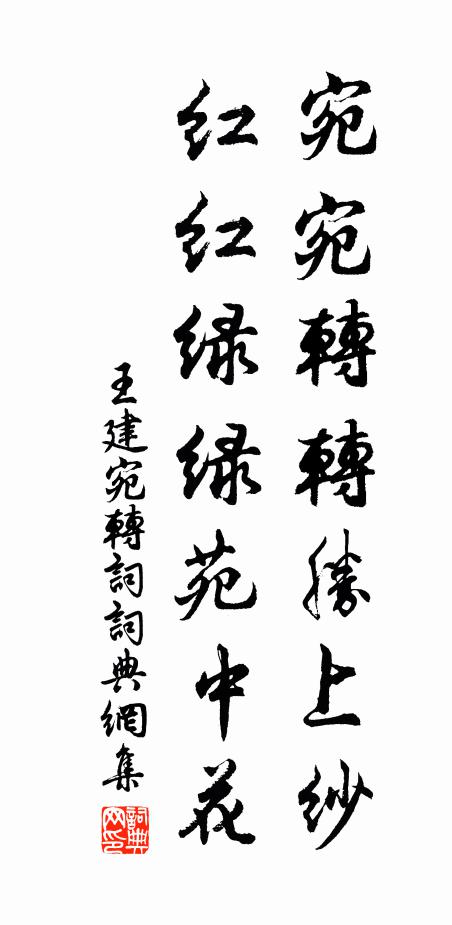 宛宛轉轉勝上紗
紅紅緑緑苑中花
王建宛轉詞詞典網集
詞典网印